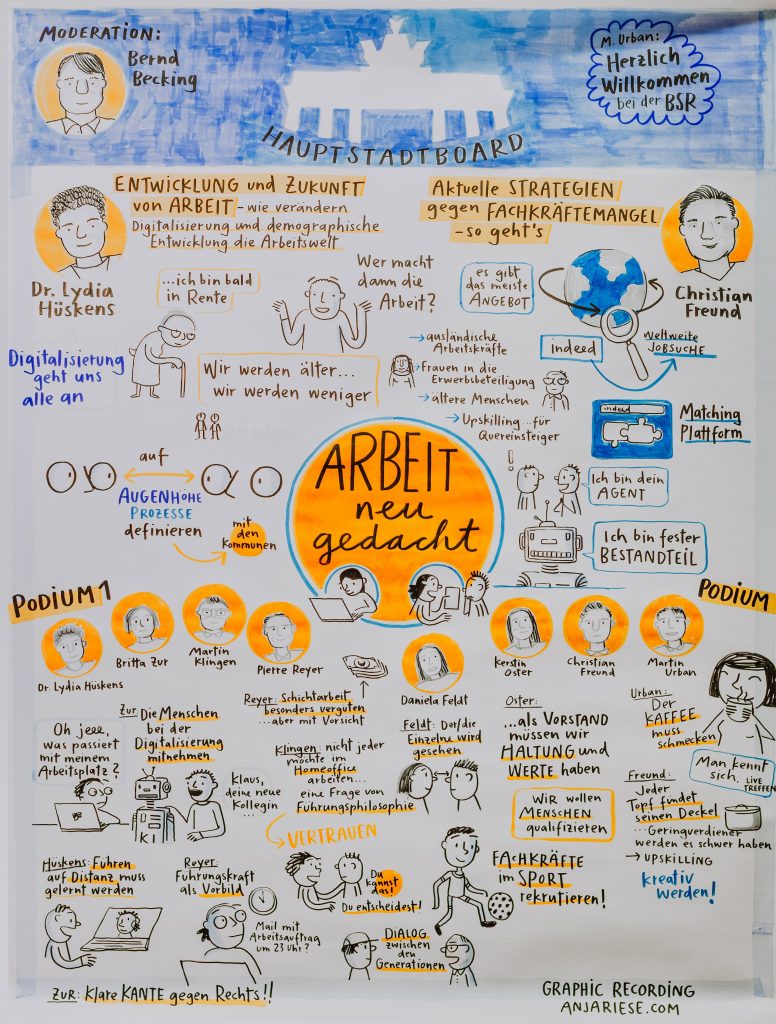 MODERATION:
Bernd
Becking
M. Urban:
Herzlich
Willkommen
bei der BSR
HAUPTSTADTBOARD
ENTWICKLUNG und ZUKUNFT
von ARBEIT - wie verändern
Digitalisierung und demographische
Entwicklung die Arbeitswelt
Dr. Lydia
Hüskens
Digitalisierung
geht uns
alle an
...ich bin bald
in Rente
Wer macht
dann die
Arbeit?
Wir werden älter...
wir werden weniger
auf
AUGENHÖHE
PROZESSE
definieren
mit den
Kommunen
Aktuelle STRATEGIEN
gegen FACHKRÄFTEMANGEL
- so geht's
Christian
Freund
es gibt
das meiste
ANGEBOT
indeed
weltweite
JOBSUCHE
→ ausländische
Arbeitskräfte
→ Frauen in die
Erwerbsbeteiligung
→ ältere Menschen
→ Upskilling...für
Quereinsteiger
indeed
Matching
Plattform
!
Ich bin dein
AGENT
Ich bin fester
BESTANDTEIL
ARBEIT
neu
gedacht
PODIUM 1
Dr. Lydia Hüskens
Britta Zur
Martin
Klingen
Pierre Reyer
Oh jeee,
was passiert
mit meinem
Arbeitsplatz?
Zur: Die Menschen
bei der
Digitalisierung
mitnehmen
KI
Klaus,
deine neue
Kollegin
...
Reyer: Schichtarbeit
besonders vergüten
...aber mit Vorsicht
Klingen: nicht jeder
möchte im
Homeoffice
arbeiten...
eine Frage von
Führungsphilosophie
VERTRAUEN
Du
kannst
das!
Du entscheidest!
Hüskens: Führen
auf Distanz muss
gelernt werden
Reyer:
Führungskraft
als Vorbild
Mail mit
Arbeitsauftrag
um 23 Uhr?
Zur: Klare KANTE gegen Rechts!!
PODIUM
Daniela Feldt
Kerstin
Oster
Christian
Freund
Martin
Urban
Feldt: Der/die
Einzelne wird
gesehen
Oster:
...als VORSTAND
müssen wir
HALTUNG und
WERTE haben
Wir wollen
MENSCHEN
qualifizieren
FACHKRÄFTE
im SPORT
rekrutieren!
DIALOG
zwischen
den
Generationen
Urban:
Der
KAFFEE
muss
schmecken
Man kennt
sich. LIVE
TREFFEN
Freund:
Jeder
Topf findet
seinen Deckel
...Geringverdiener
werden es schwer haben
→ UPSKILLING
kreativ
werden!
GRAPHIC RECORDING
ANJARIESE.COM